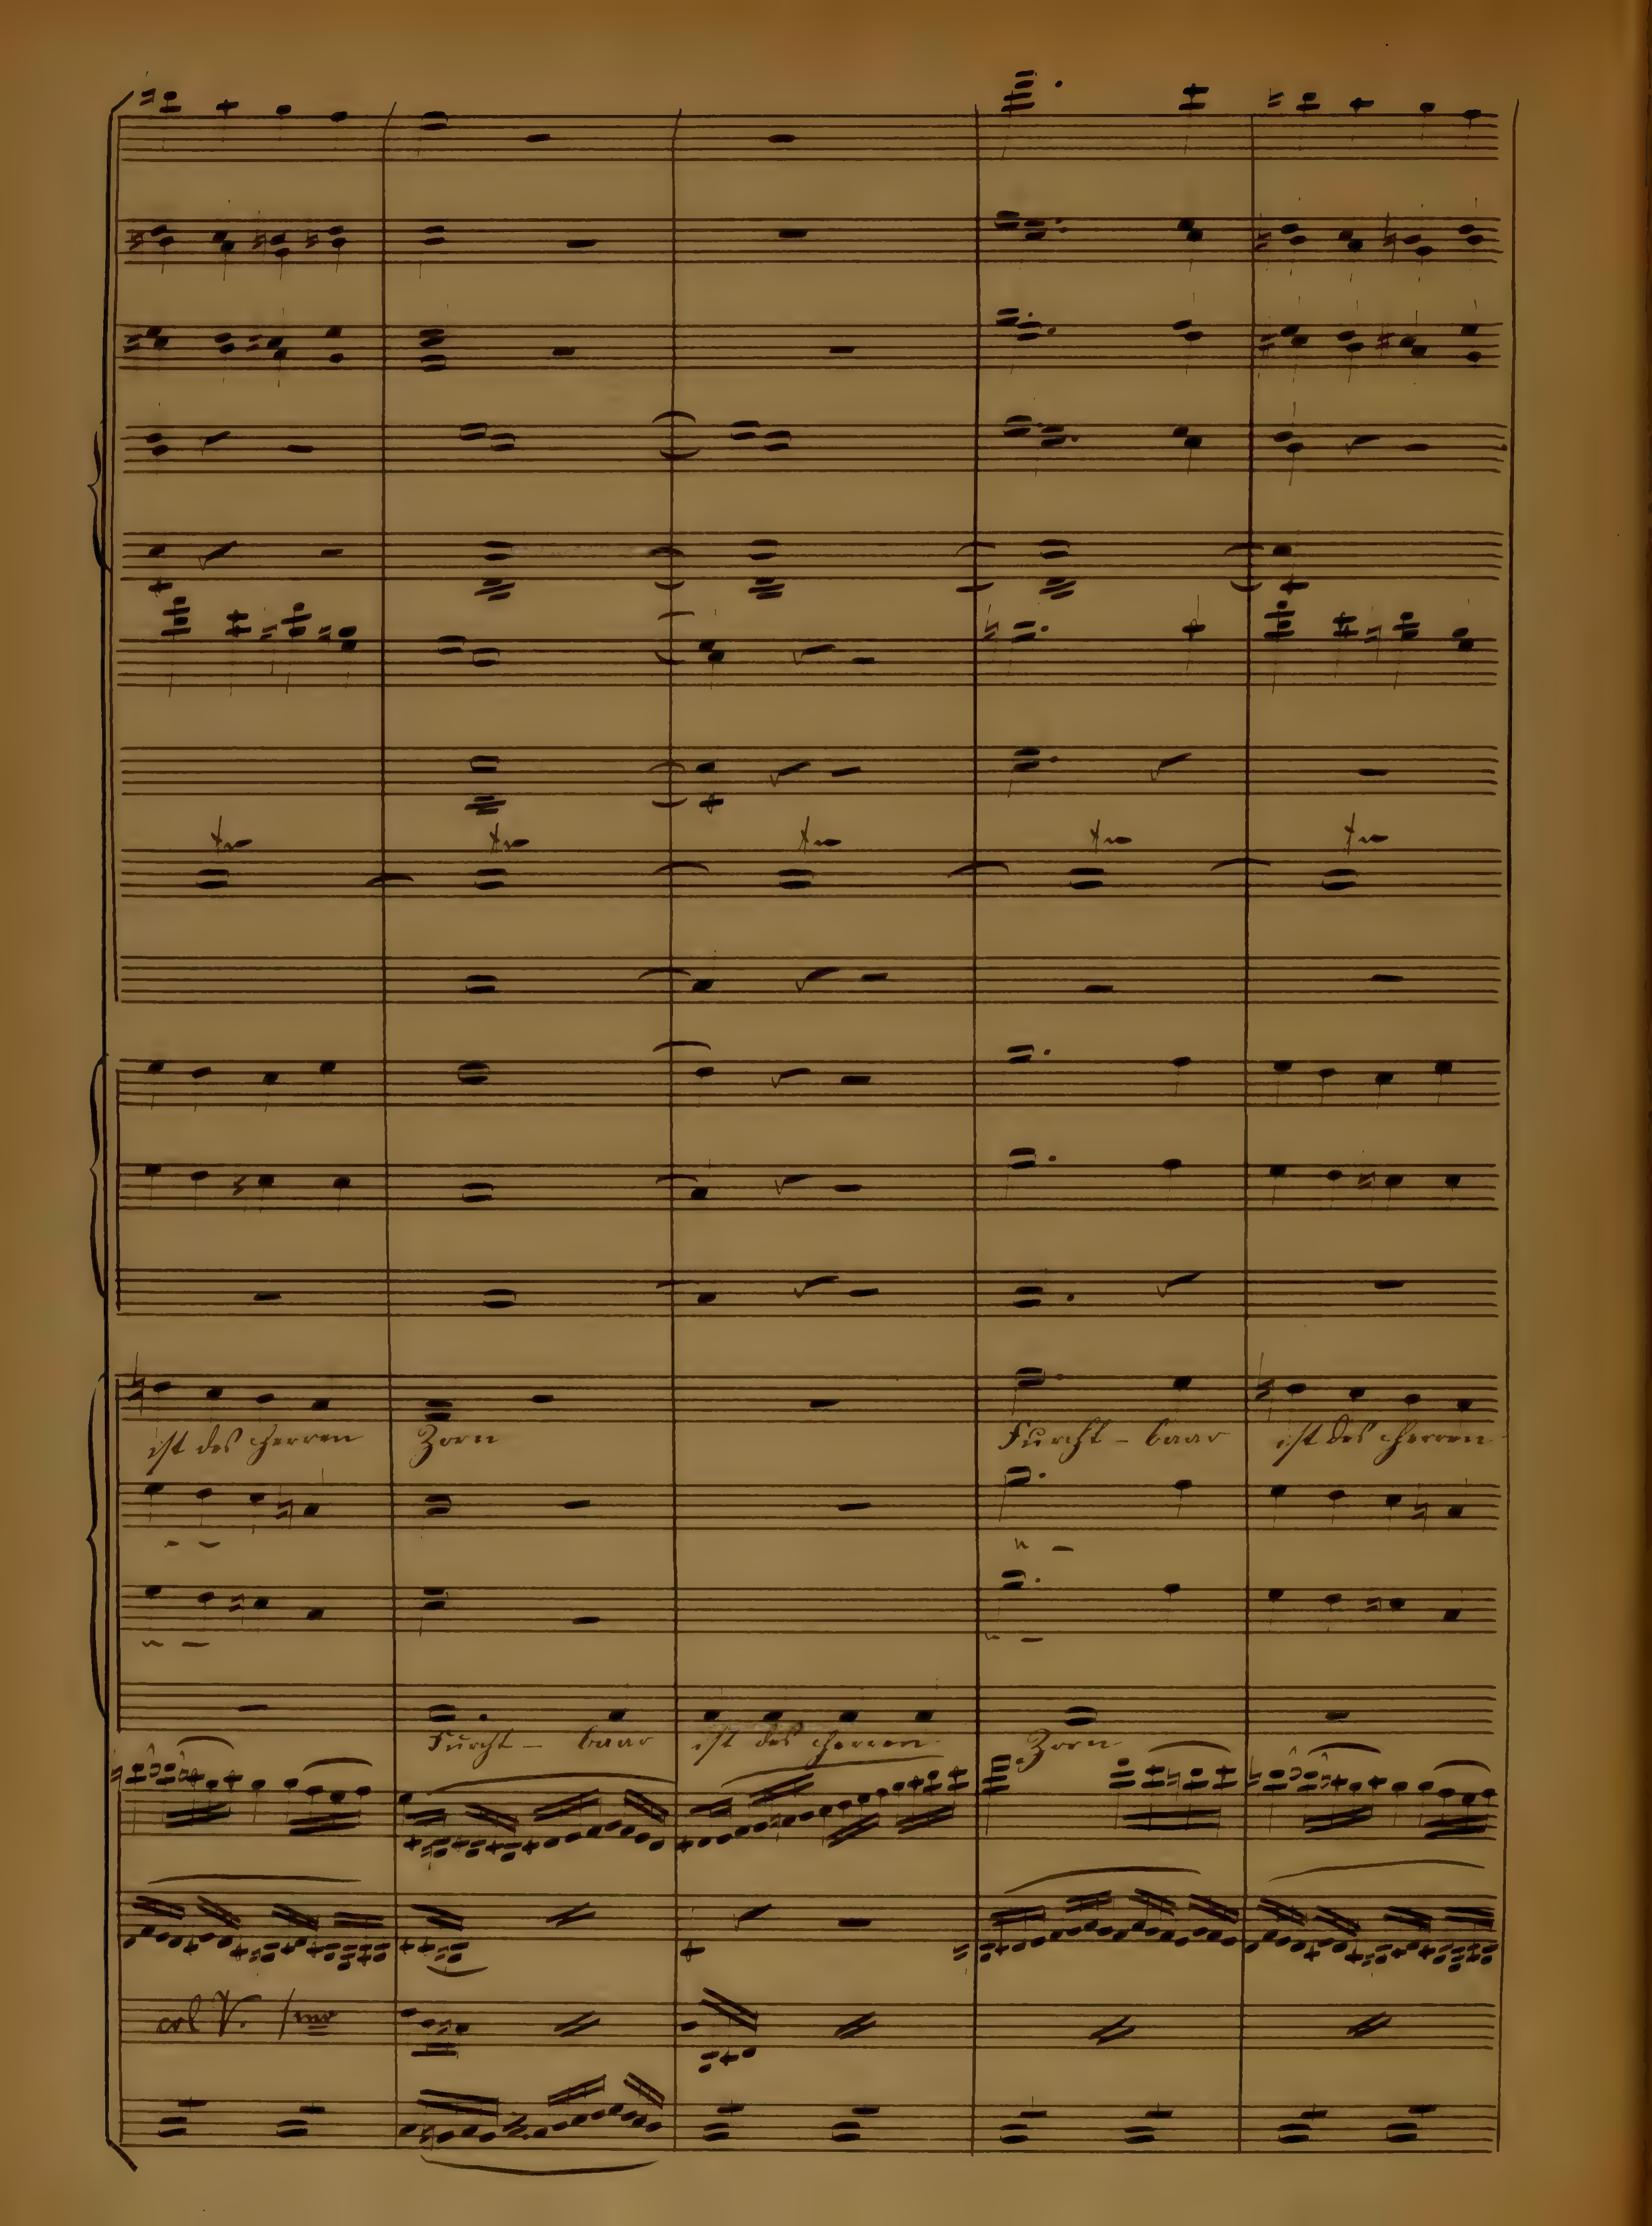 tr tr tr tr tr
ist des Herren Zorn Furcht - baar ist des Herren
Furcht - baar ist des Herren Zorn
col V.